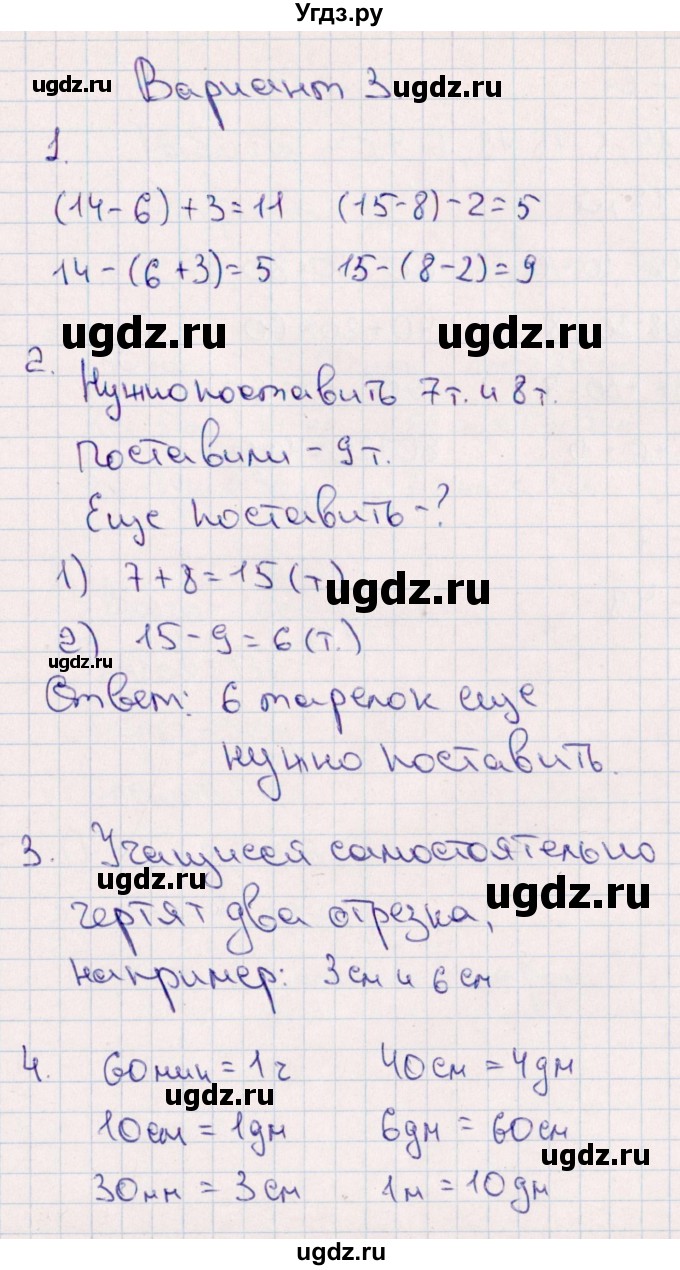 Угдз.ру
ugdz.ru Вариант 3 ugdz.ru
1.
(14-6)+3=11 (15-8)-2=5
14-(6+3)=5 15-(8-2)=9
ugdz.ru ugdz.ru
2. Нужно поставить 7т. и 8т.
Поставили - 9т.
Еще поставить - ?
1) 7+8=15(т)
ugdz.ru
2) 15-9=6(т.)
ugdz.ru
Ответ: 6 тарелок еще
нужно поставить.
3. Учащиеся самостоятельно
ugdz.ru ugdz.ru
чертят два отрезка,
например: 3см и 6см
4. 60мин=1ч 40см=4дм
ugdz.ru
10см=1дм 6дм=60см
ugdz.ru
30мм=3см 1м=10дм
ugdz.ru